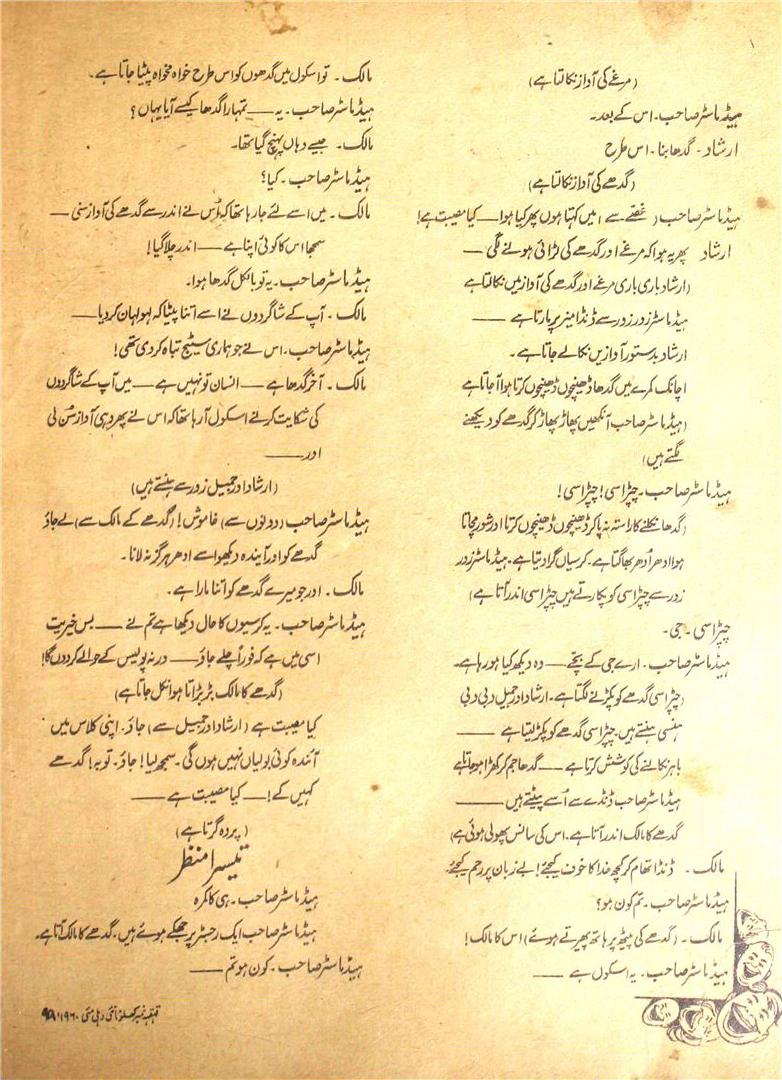 (مرغے کی آواز نکالتا ہے)
ہیڈ ماسٹر صاحب۔ اس کے بعد۔
ارشاد۔ گدھا بنا۔ اس طرح
(گدھے کی آواز نکالتا ہے)
ہیڈ ماسٹر صاحب (غصے سے) میں کہتا ہوں پھر کیا ہوا —— کیا مصیبت ہے!
ارشاد پھر یہ ہوا کہ مرغے اور گدھے کی لڑائی ہونے لگی ——
(ارشاد باری باری مرغے اور گدھے کی آوازیں نکالتا ہے
ہیڈ ماسٹر زور زور سے ڈنڈا میز پر مارتا ہے ——
ارشاد بدستور آوازیں نکالے جاتا ہے۔
اچانک کمرے میں گدھا ڈھینچوں ڈھینچوں کرتا ہوا آ جاتا ہے
(ہیڈ ماسٹر صاحب آنکھیں پھاڑ پھاڑ کر گدھے کو دیکھنے
لگتے ہیں)
ہیڈ ماسٹر صاحب۔ چپڑاسی! چپڑاسی!
(گدھا نکلنے کا راستہ نہ پا کر ڈھینچوں ڈھینچوں کرتا اور شور مچاتا
ہوا ادھر اُدھر بھاگتا ہے۔ کرسیاں گرا دیتا ہے۔ ہیڈ ماسٹر زور
زور سے چپڑاسی کو پکارتے ہیں چپڑاسی اندر آتا ہے)
چپڑاسی۔ جی۔
ہیڈ ماسٹر صاحب۔ ارے جی کے بچّے —— وہ دیکھ کیا ہو رہا ہے۔
(چپڑاسی گدھے کو پکڑنے لگتا ہے۔ ارشاد اور جمیل دبی دبی
ہنسی ہنستے ہیں۔ چپڑاسی گدھے کو پکڑ لیتا ہے ——
باہر نکالنے کی کوشش کرتا ہے —— گدھا جم کر کھڑا ہو جاتا ہے
ہیڈ ماسٹر صاحب ڈنڈے سے اُسے پیٹتے ہیں ——
گدھے کا مالک اندر آتا ہے۔ اس کی سانس پھولی ہوئی ہے)
مالک۔ ڈنڈا تھام کر کچھ خدا کا خوف کیجئے! بے زبان پر رحم کیجئے
ہیڈ ماسٹر صاحب۔ تم کون ہو؟
مالک۔ (گدھے کی پیٹھ پر ہاتھ پھیرتے ہوئے) اس کا مالک!
ہیڈ ماسٹر صاحب۔ یہ اسکول ہے ——
مالک۔ تو اسکول میں گدھوں کو اس طرح خواہ مخواہ پیٹا جاتا ہے۔
ہیڈ ماسٹر صاحب۔ یہ —— تمہارا گدھا کیسے آیا یہاں؟
مالک۔ جیسے وہاں پہنچ گیا تھا۔
ہیڈ ماسٹر صاحب۔ کیا؟
مالک۔ میں اسے لئے جا رہا تھا کہ اُس نے اندر سے گدھے کی آواز سنی ——
سمجھا اس کا کوئی اپنا ہے —— اندر چلا گیا!
ہیڈ ماسٹر صاحب۔ یہ تو بالکل گدھا ہوا۔
مالک۔ آپ کے شاگردوں نے اسے اتنا پیٹا کہ لہولہان کر دیا ——
ہیڈ ماسٹر صاحب۔ اس نے جو ہماری سٹیج تباہ کر دی تھی!
مالک۔ آخر گدھا ہے —— انسان تو نہیں ہے —— میں آپ کے شاگردوں
کی شکایت کرنے اسکول آ رہا تھا کہ اس نے پھر وہی آواز سُن لی
اور ——
(ارشاد اور جمیل زور سے ہنستے ہیں)
ہیڈ ماسٹر صاحب (دونوں سے) خاموش! (گدھے کے مالک سے) لے جاؤ
گدھے کو اور آیندہ دیکھو اسے ادھر ہرگز نہ لانا۔
مالک۔ اور جو میرے گدھے کو اتنا مارا ہے۔
ہیڈ ماسٹر صاحب۔ یہ کرسیوں کا حال دیکھا ہے تم نے —— بس خیریت
اسی میں ہے کہ فوراً چلے جاؤ —— ورنہ پولیس کے حوالے کر دوں گا!
(گدھے کا مالک بڑبڑاتا ہوا نکل جاتا ہے)
کیا مصیبت ہے (ارشاد اور جمیل سے) جاؤ۔ اپنی کلاس میں
آئندہ کوئی بولیاں نہیں ہوں گی۔ سمجھ لیا! جاؤ۔ توبہ! گدھے
کہیں کے! —— کیا مصیبت ہے ——
(پردہ گرتا ہے)
تیسرا منظر
ہیڈ ماسٹر صاحب۔ ہی کا کمرہ
ہیڈ ماسٹر صاحب ایک رجسٹر پر جھکے ہوئے ہیں۔ گدھے کا مالک آتا ہے۔
ہیڈ ماسٹر صاحب۔ کون ہو تم ——
قہقہہ نمبر کھلونا نئی دہلی مئی ۱۹۶۰ء